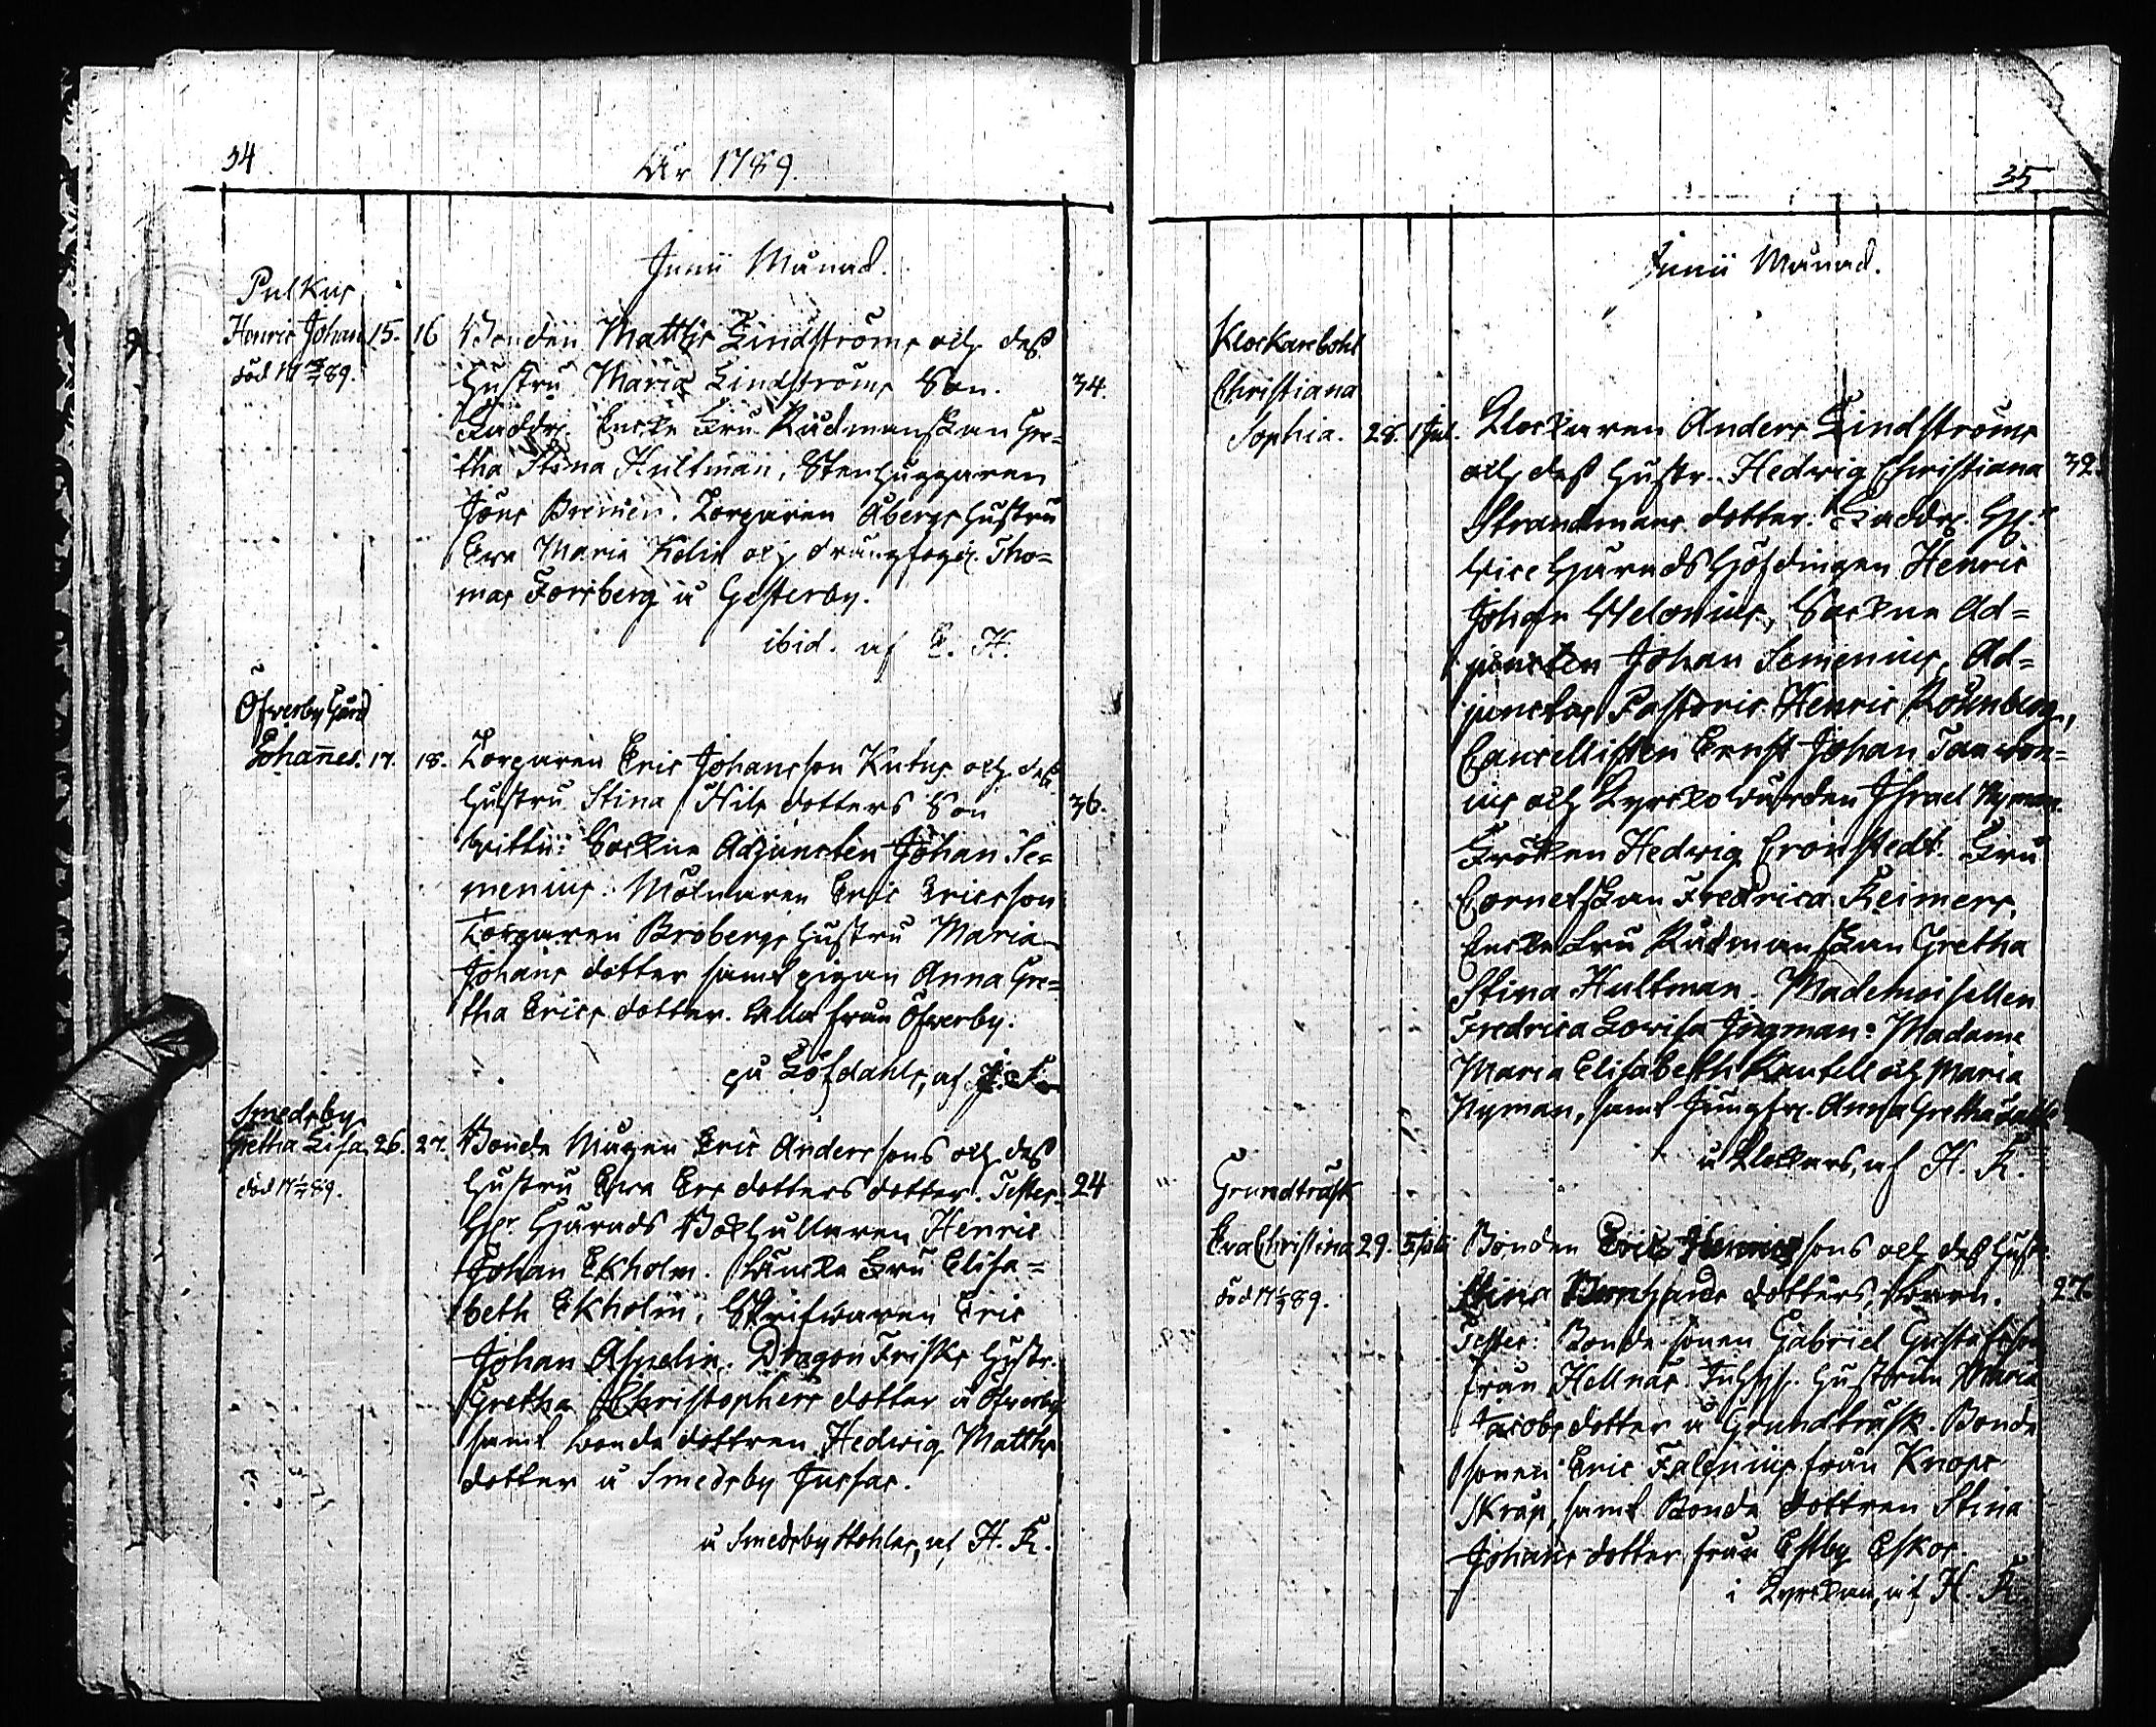 34
År 1789.
Junii Månad.
Pulkus
Henric Johan 15. 16 Bonden Matths Lindströms och dess
död 17 89. hustru Maria Lindströms Son. 34.
Faddr. Encke Fru Rådmanskan Gre=
tha Stina Hultman, Stenhuggaren
Jöns Bremer. Torparen Åbergs hustru
Eva Maria Kelin och drängfogd. Tho=
mas Forsberg å Gesterby.
ibid. af E. H.
Öfverby Gård
Johañes. 17. 18. Torparen Eric Johansson Kutus och dess
hustru Stina Nils dotters Son 36.
Vittn: Sockne Adjuncten Johan Se=
menius. Mölnaren Eric Ericsson
Torparen Brobergs hustru Maria
Johans dotter samt pigan Anna Gre=
tha Erics dotter. Alla från Öfverby.
på Löfdahls, af
Smedsby
Gretha Lisa 26. 27. Bonde Mågen Eric Anderssons och dess
död 17 89. hustru Eva Ers dotters dotter. Testes. 24
Hr. Härads Bokhållaren Henric
Johan Ekholm. Encke Fru Elisa=
beth Ekholm, Skrifvaren Eric
Johan Aspelin. Dragon Frisks hustr.
Gretha Christophers dotter å Öfverby
samt bonde dottren Hedvig Matths
dotter å Smedsby Jussas.
å Smedsby Stohlas, af H. R.
35
Junii Månad.
Klockarebohl
Christiana
Sophia. 28. 1 Jul. Klockaren Anders Lindströms
och dess hustr. Hedvig Christiana 32.
Strandmans dotter. Faddr. Hr.
Vice Häradshöfdingen Henric
Johan Melonius, Sockne Ad=
juncten Johan Semenius, Ad=
junctus Pastoris Henric Rosenberg,
Cancellisten Ernst Johan
ius och Kyrkovärden Israel Nyman.
Fröken Hedvig Cronstedt. Fru
Cornetskan Fredrica Reimers.
Encke Fru Rådmanskan Gretha
Stina Hultman. Mademoisellen
Fredrica Lovisa Jngman. Madame
Maria Elisabeth Kantell och Maria
Nyman, samt Jungfr. Anna Gretha
å Klockars, af H. R.
Grundträsk
Eva Christina 29. 5 Julii Bonden Eric Henricssons och dess hustr.
död 17 89. Stina dotters, barn. 27.
Testes: Bonde sonen Gabriel Gustafsson
från Hellnäs. hustrun Maria
Jacobs dotter å Grundträsk. Bonde
sonen Eric Falenius från Knaps
Skräp, samt Bonde dottren Stina
Johans dotter från Estby Eskos.
i Kyrckan, af H. R.